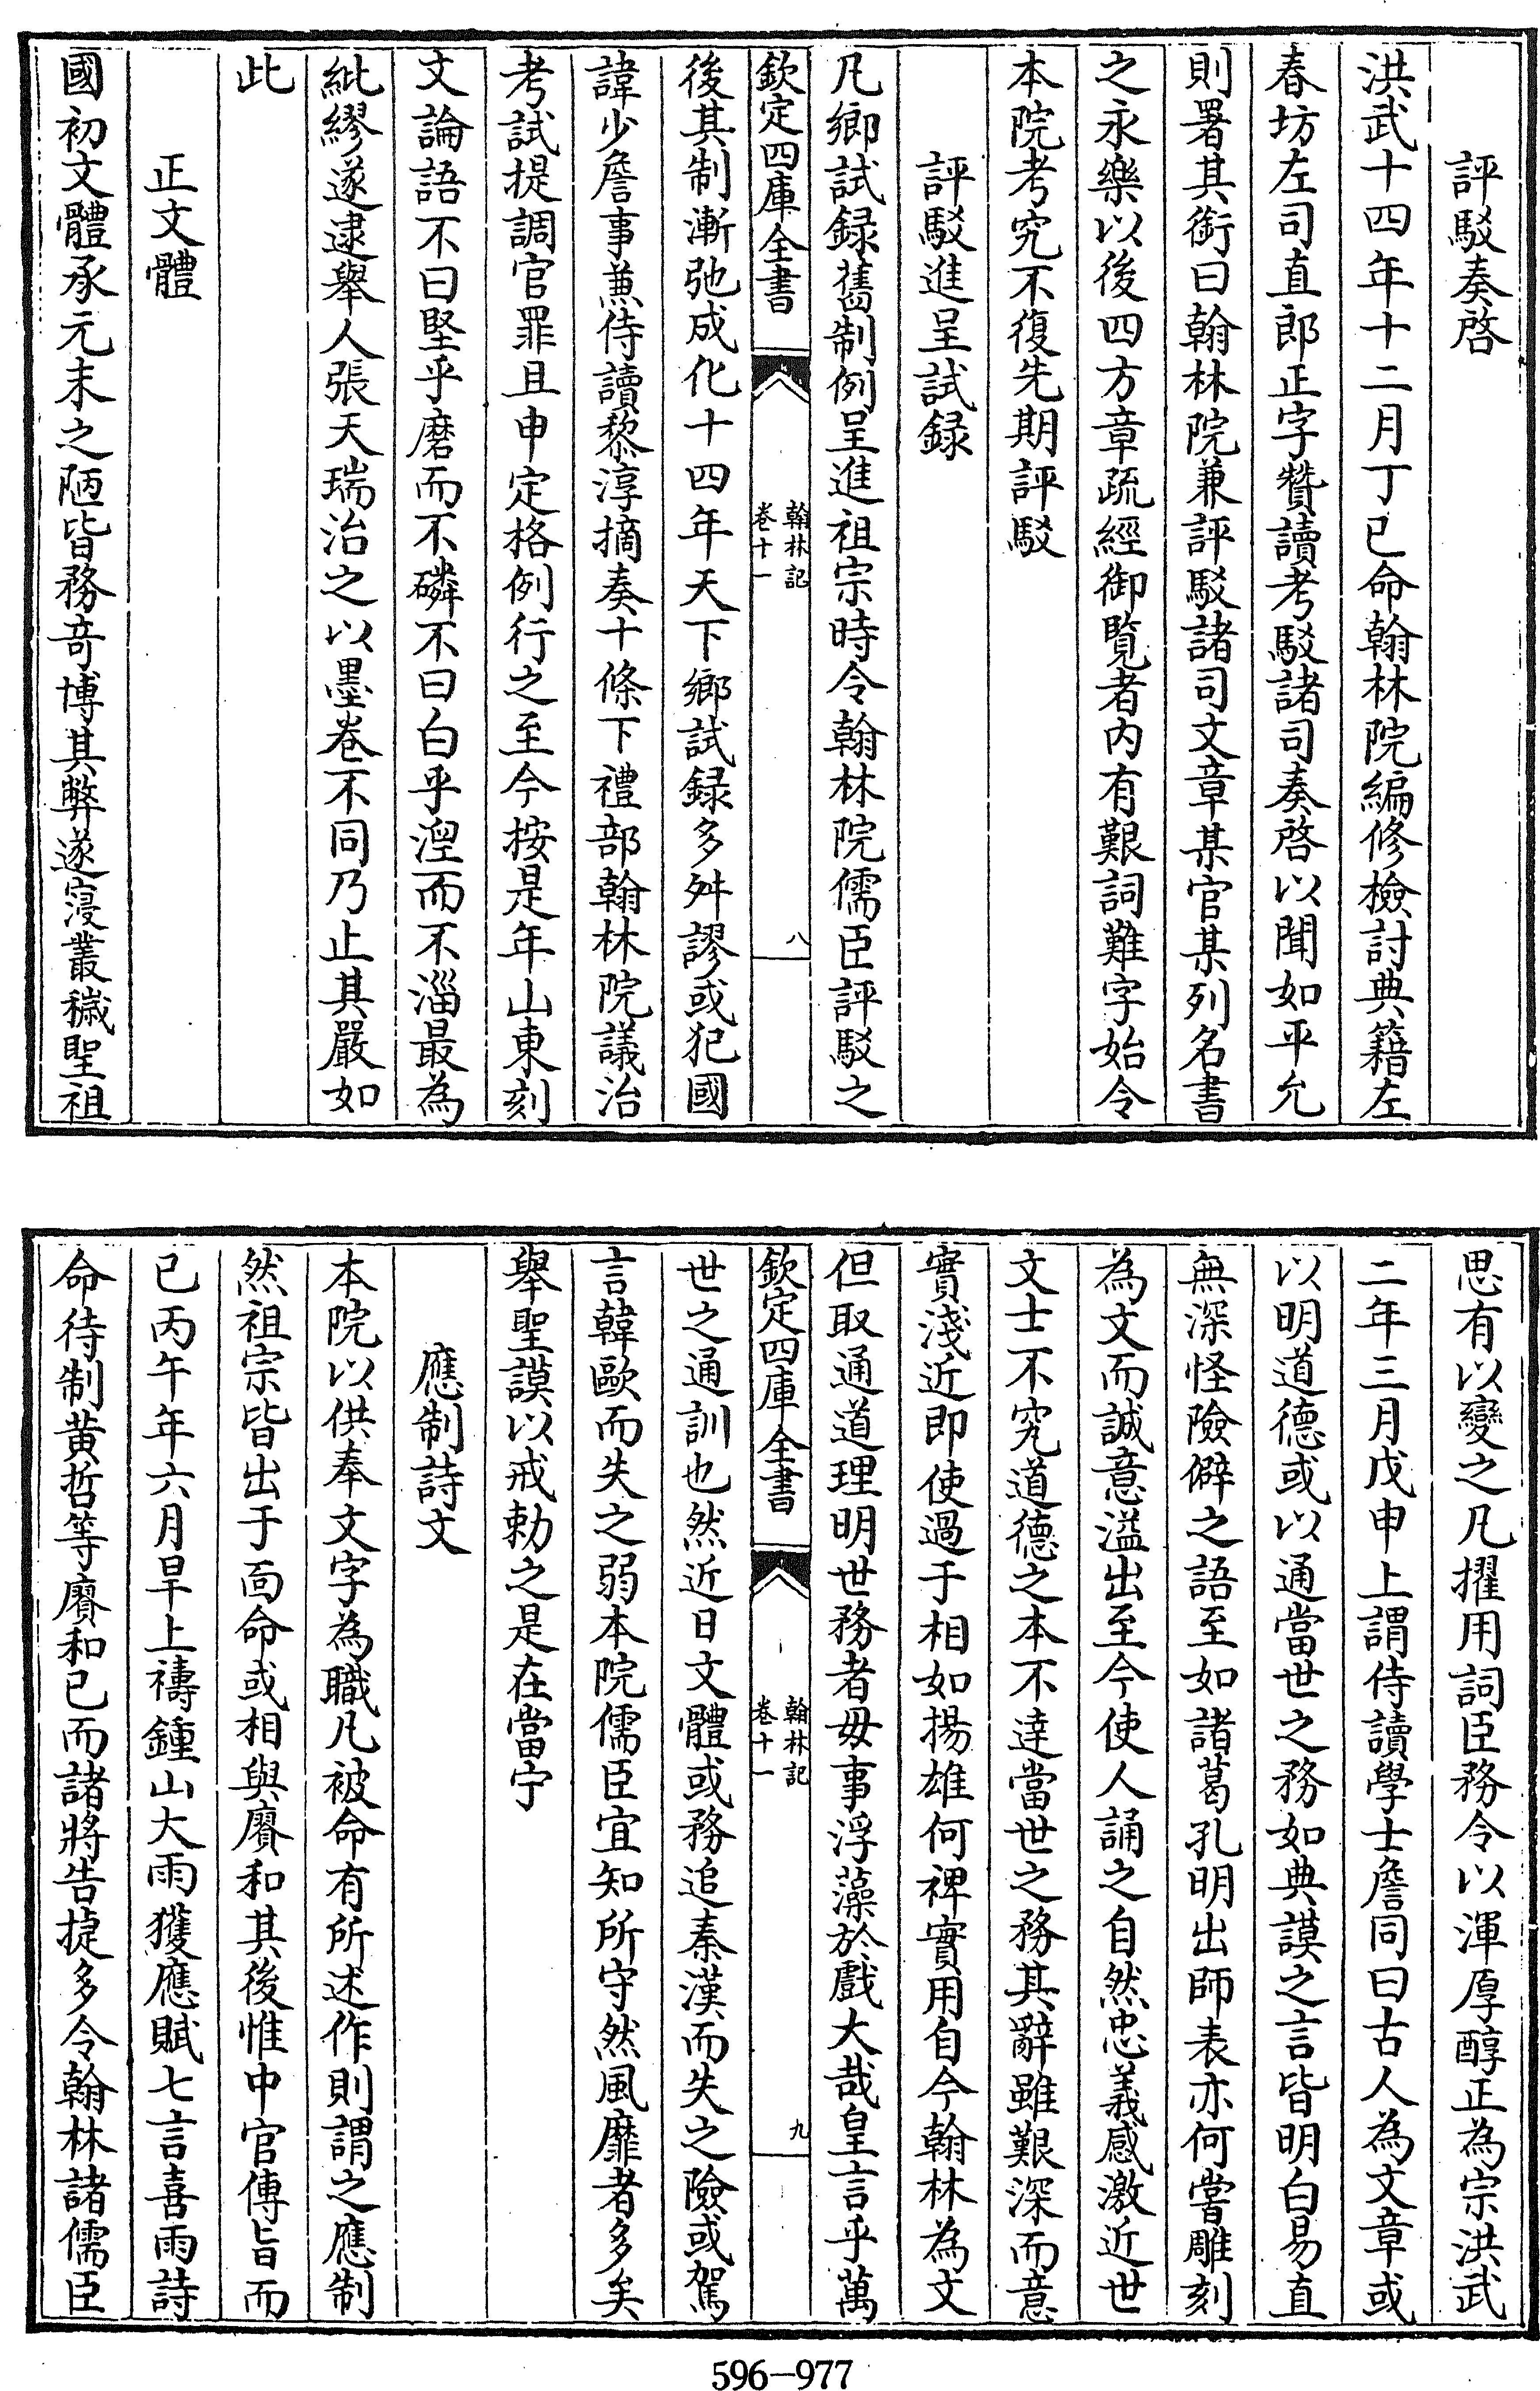 評駁奏啓
洪武十四年十二月丁巳命翰林院編修檢討典籍左
春坊左司直郎正字贊讀考駁諸司奏啓以聞如平允
則署其銜曰翰林院兼評駁諸司文章某官某列名書
之永樂以後四方章疏經御覧者内有艱詞難字始令
本院考究不復先期評駁
評駁進呈試録
凡鄉試録舊制例呈進祖宗時令翰林院儒臣評駁之
欽定四庫全書
翰林記
卷十一
八
後其制漸弛成化十四年天下鄉試録多舛謬或犯國
諱少詹事兼侍讀黎淳摘奏十條下禮部翰林院議治
考試提調官罪且申定格例行之至今按是年山東刻
文論語不曰堅乎磨而不磷不曰白乎湼而不淄最為
紕繆遂逮舉人張天瑞治之以墨卷不同乃止其嚴如
此
正文體
國初文體承元末之陋皆務竒博其弊遂寖叢穢聖祖
思有以變之凡擢用詞臣務令以渾厚醇正為宗洪武
二年三月戊申上謂侍讀學士詹同曰古人為文章或
以明道德或以通當世之務如典謨之言皆明白易直
無深怪險僻之語至如諸葛孔明出師表亦何嘗雕刻
為文而誠意溢出至今使人誦之自然忠義感激近世
文士不究道德之本不達當世之務其辭雖艱深而意
實淺近即使過于相如揚雄何裨實用自今翰林為文
但取通道理明世務者毋事浮藻於戲大哉皇言乎萬
欽定四庫全書
翰林記
卷十一
九
世之通訓也然近日文體或務追秦漢而失之險或駕
言韓歐而失之弱本院儒臣宜知所守然風靡者多矣
舉聖謨以戒勅之是在當宁
應制詩文
本院以供奉文字為職凡被命有所述作則謂之應制
然祖宗皆出于面命或相與賡和其後惟中官傳旨而
已丙午年六月旱上禱鍾山大雨獲應賦七言喜雨詩
命待制黄哲等賡和已而諸將告捷多令翰林諸儒臣
596—977